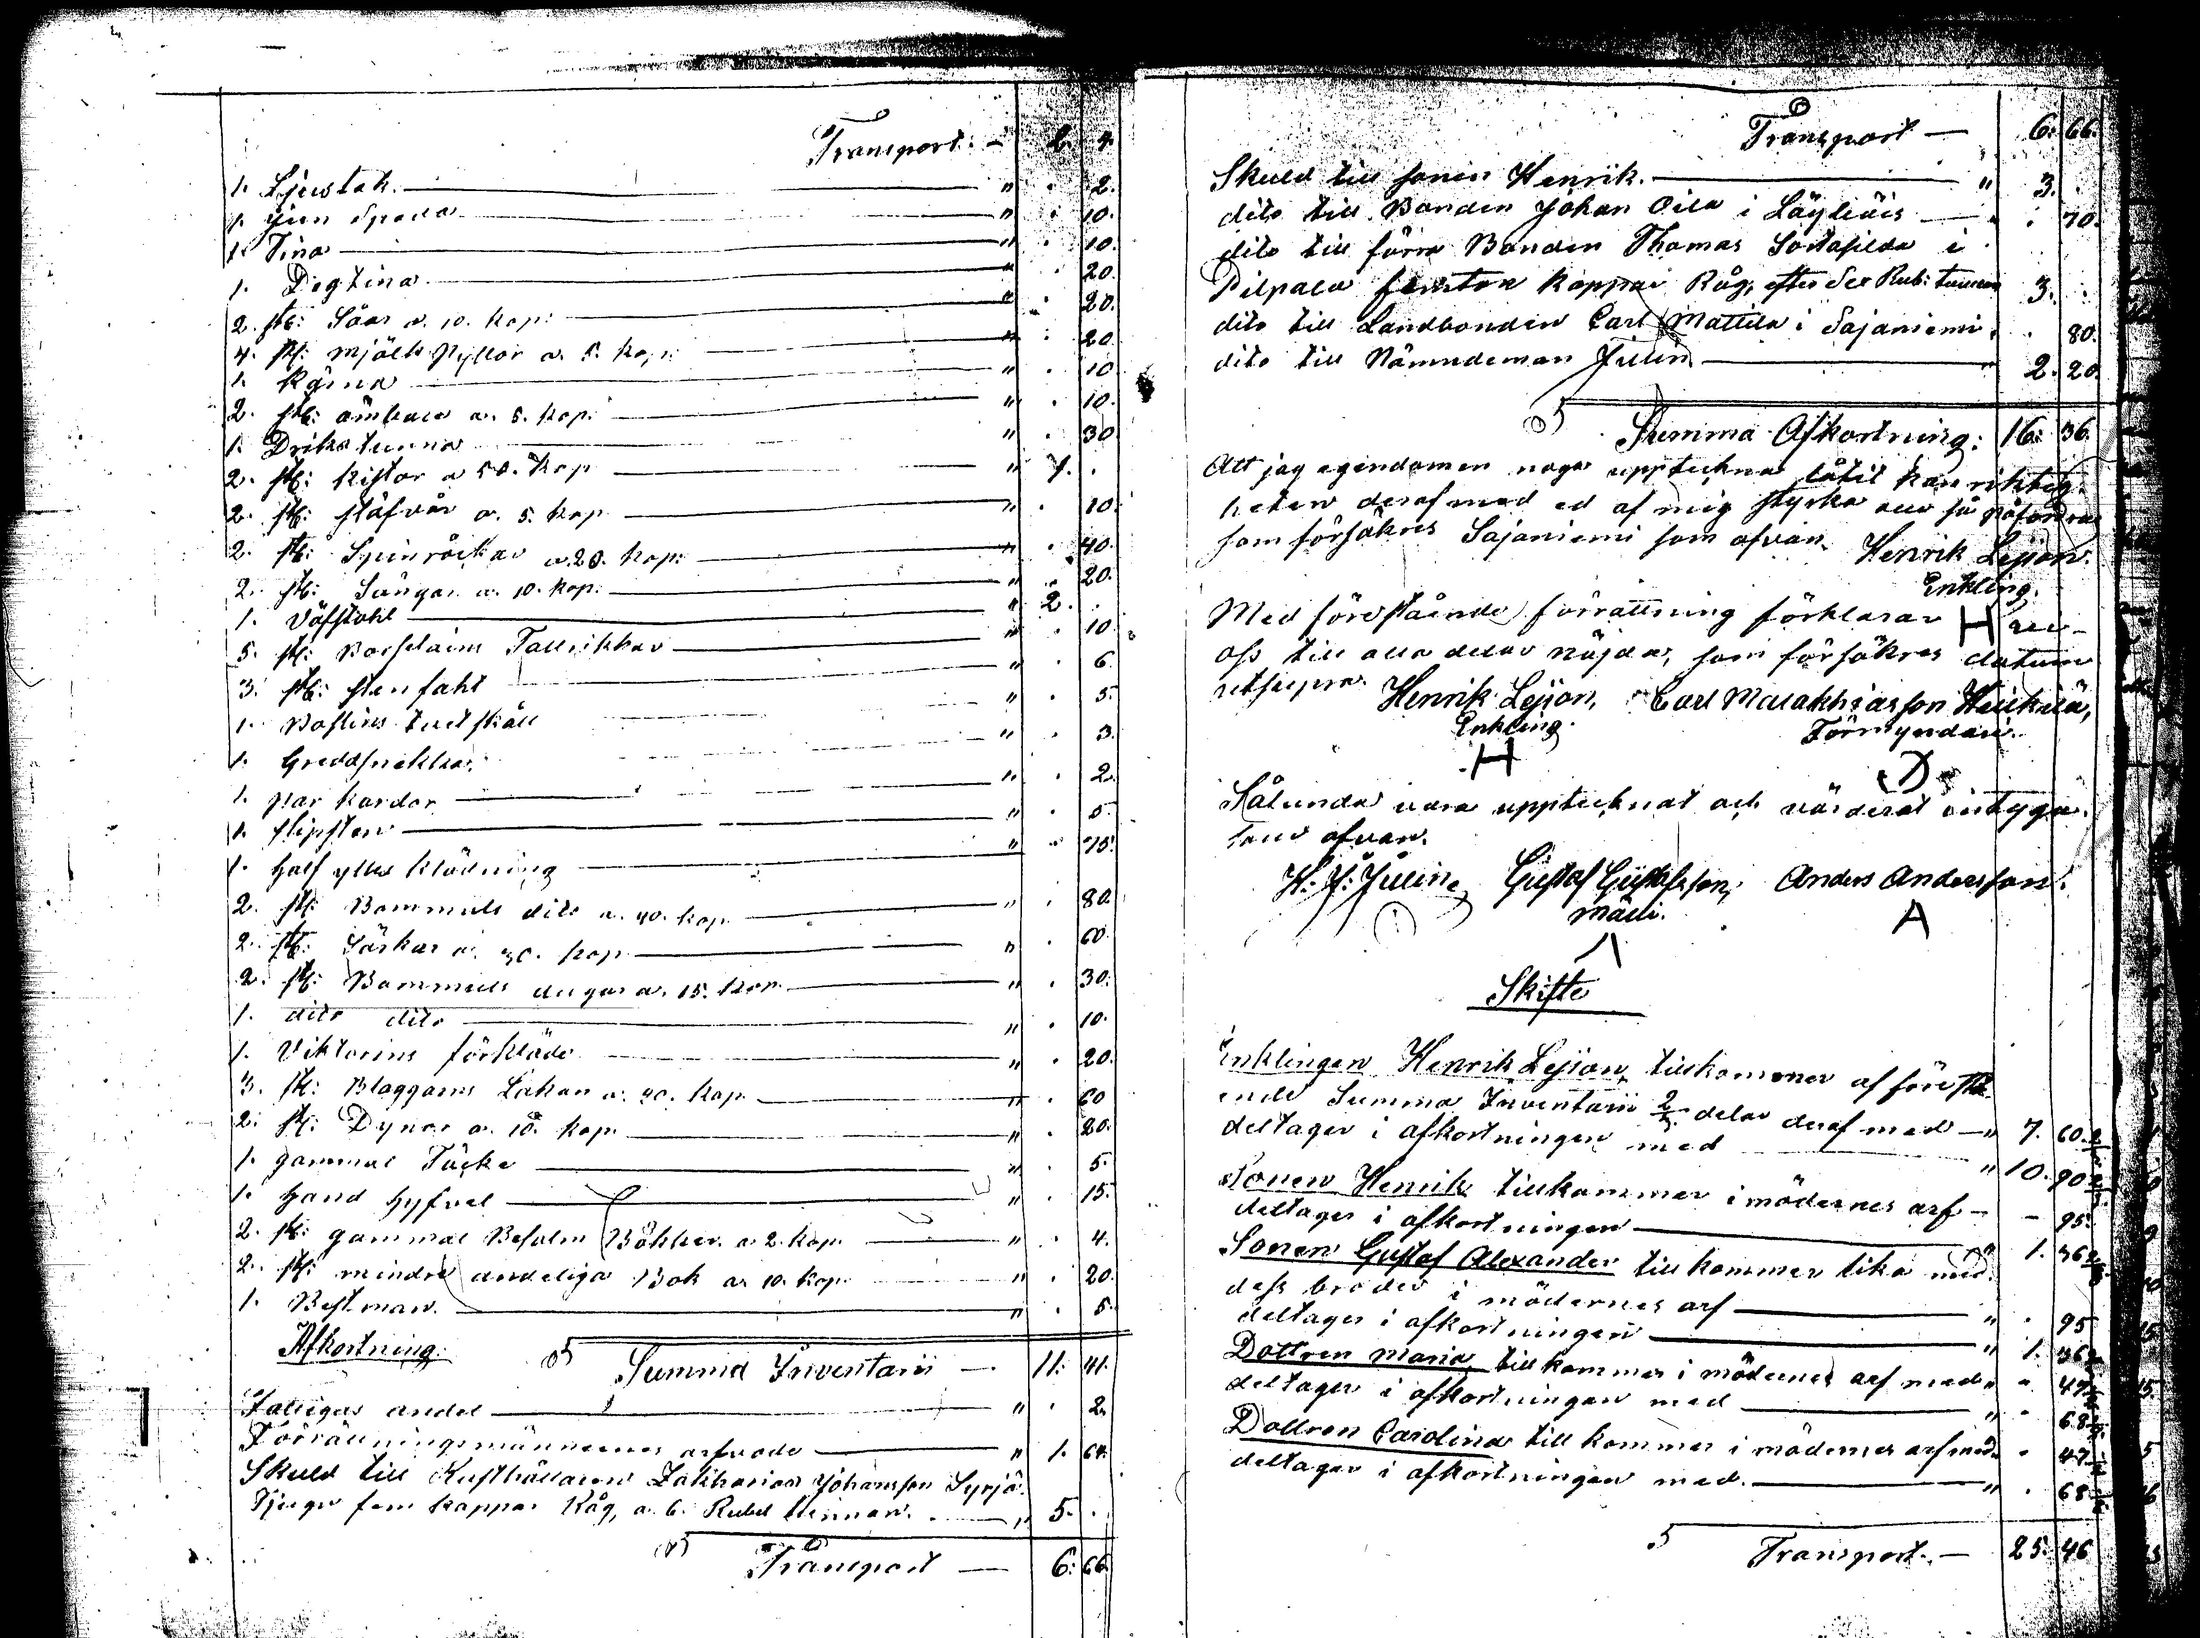 Transport: — 2. 4.
1. Ljustak. " . 2.
1. Jern Spada " . 10.
1. Tina " . 10.
1. Degtina " . 20.
2. st: Såar a. 10. kop: " . 20.
4. st: mjölk Pyttor a. 5. kop: " . 20
1. Kärna " . 10
2. st: ämbare a. 5. kop. " . 10.
1. Dricks tunna " . 30
2. st: kistor a 50. kop " 1. .
2. st: stäfvår a. 5. kop " . 10.
2. st: Spinråckar a. 20. kop: " . 40.
2. st: Sängar a. 10. kop. " . 20.
1. Väfstohl " 2. .
5. st: Porslains Tallrikkar " . 10
3. st: stenfaht " . 6.
1. Poslins skåll " . 5.
1. Graddsnekka. " . 3.
1. par kardor " . 2.
1. slipsten " . 5.
1. half ylles klädning " . 75.
2. st: Bommuls dito a. 40. kop " . 80.
2. st: Särkar a. 30. kop " . 60.
2. st: Bommuls dugar a. 15. kop. " . 30.
1. dito dito " . 10.
1. Viktorins förkläde " . 20.
3. st: Blaggarns Lakan a. 20. kop. " . 60
2. st: Dynor a. 10. kop. " . 20.
1. gammal Täcke " . 5.
1. hand hyfvel " . 15.
2. st: gammal Psalm Böcker a. 2. kop. " . 4.
2. st: mindre andeliga Bok a. 10. kop. " . 20.
1. Bestman. " . 5.
Afkortning.
Summa Inventarii — 11. 41.
Fattigas andel " . 2.
Förrättningsmännernes arfvode " 1. 64.
Skuld till Rusthållaren Zakharias Johansson Syrjä
Tjugu fem kappar Råg, a. 6. Rubel tunnan. " 5. .
Transport — 6: 66.
Transport — 6: 66.
Skuld till sonen Henrik. " 3. .
dito till Bonden Johan Oila i Läyliäis " . 70.
dito till förra Bonden Thomas Sortasilda i
Pilpala femton kappar Råg, efter sex Rub: tunnan 3. .
dito till Landbonden Carl Mattila i Sajaniemi " . 80.
dito till Nämndeman Julin " 2. 20.
Summa Afkortning: 16: 36.
Att jag egendomen noga upptekna låtit kan riktig-
heten deraf med ed af mig styrka om så påfordras
som försäkres Sajaniemi som ofvan. Henrik Lejion.
Enkling.
Med förestående förrättning förklarar H vi
oss till alla delar nöjda, som försäkres datum
utsupra. Henrik Lejion, Carl Malakhiasson Heikkilä,
Enkling. Förmyndare.
H
Sålunda vara upptecknat och värderat intyga.
som ofvan.
H: J: Julin, Gustaf Gustafsson, Anders Andersson.
Mäki. A
Skifte
Enklingen Henrik Lejion, tillkommer af förestå-
ende Summa Inventarii 2/3 delar deraf med " 7. 60 2/3
deltager i afkortningen med " 10. 90 2/3
Sonen Henrik tillkommer i mödernes arf — — 95.
deltager i afkortningen " 1. 36 2/6
Sonen Gustaf Alexander tillkommer lika med
dess broder i mödernes arf " . 95
deltager i afkortningen " 1. 36 2/6
Dottren Maria tillkommer i mödernes arf med " . 47 1/2
deltager i afkortningen med " . 68 1/6
Dottren Carolina tillkommer i mödernes arf med " . 47 1/2
deltager i afkortningen med. " . 68 1/6
Transport. — 25: 46